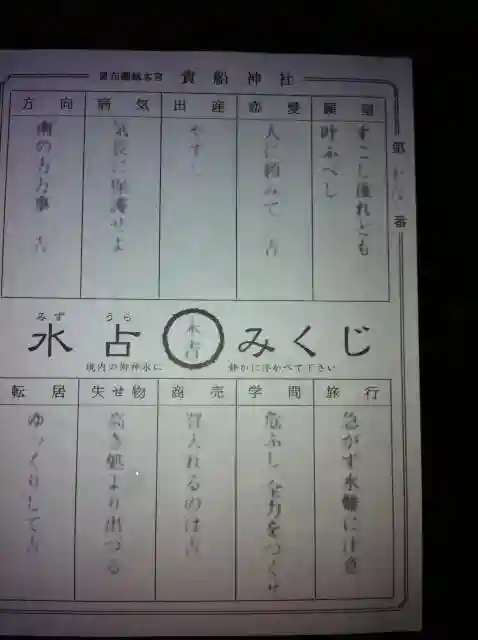 貴布禰総本宮 貴船神社
第 番
願望
すこし遅れども
叶ふべし
恋愛
人に頼みて 吉
出産
やすし
病気
気長に保護せよ
方向
南の方万事 吉
みず うら
水占 みくじ
境内の御神水に 静かに浮かべて下さい
旅行
急がず水難に注意
学問
危ふし 全力をつくせ
商売
買入れるのは吉
失せ物
高き処より出づる
転居
ゆっくりして吉